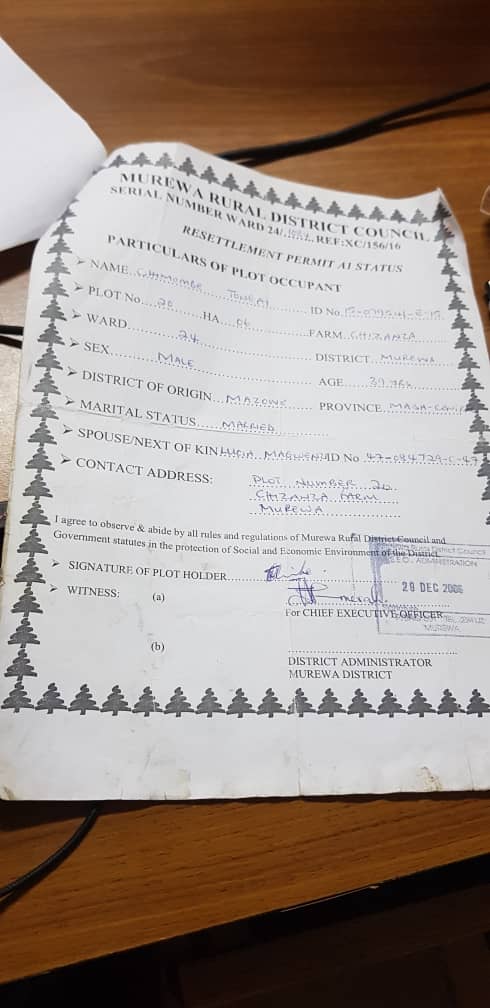 MUREWA RURAL DISTRICT COUNCIL
SERIAL NUMBER WARD 24/ REF:XC/156/16
RESETTLEMENT PERMIT A1 STATUS
PARTICULARS OF PLOT OCCUPANT
➢ NAME ID No
➢ PLOT No 20 HA 06 FARM CHIZANZA
➢ WARD 24 DISTRICT MUREWA
➢ SEX MALE AGE
➢ DISTRICT OF ORIGIN MAZOWE PROVINCE
➢ MARITAL STATUS MARRIED
➢ SPOUSE/NEXT OF KIN ID No
➢ CONTACT ADDRESS: PLOT NUMBER 20
CHIZANZA FARM
MUREWA
I agree to observe & abide by all rules and regulations of Murewa Rural District Council and
Government statutes in the protection of Social and Economic Environment of the District
➢ SIGNATURE OF PLOT HOLDER
➢ WITNESS: (a)
For CHIEF EXECUTIVE OFFICER
ADMINISTRATION
28 DEC 2006
MUREWA
(b)
DISTRICT ADMINISTRATOR
MUREWA DISTRICT